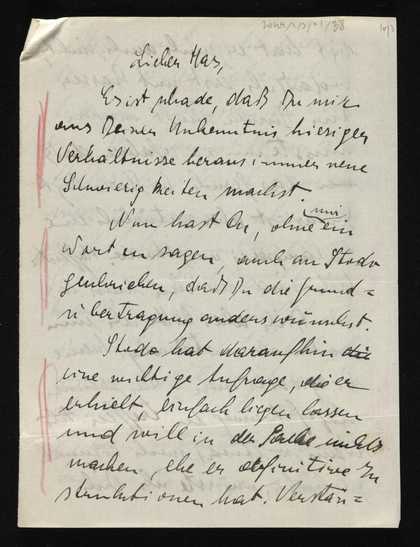 Lieber Max,
Es ist schade, daß Du mir
aus Deiner Unkenntnis hiesiger
Verhältnisse heraus immer neue
Schwierigkeiten machst.
Nun hast Du, ohne mir ein
Wort zu sagen, auch an Stodo
geschrieben, daß Du die Grund=
übertragung anders wünschst.
Stodo hat daraufhin die
eine wichtige Anfrage, die er
erhielt, einfach liegen lassen
und will in der Sache nichts
machen, ehe er definitive In
struktionen hat. Verstän=